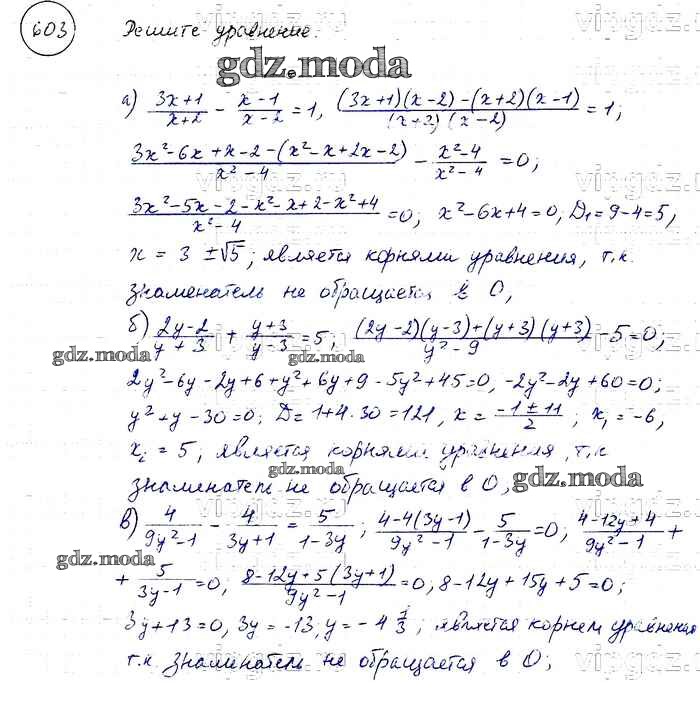 603 Решите уравнение.
gdz.moda
а) (3x+1)/(x+2) - (x-1)/(x-2) = 1, ((3x+1)(x-2)-(x+2)(x-1))/((x+2)(x-2)) = 1;
(3x²-6x+x-2-(x²-x+2x-2))/(x²-4) - (x²-4)/(x²-4) = 0;
(3x²-5x-2-x²-x+2-x²+4)/(x²-4) = 0; x²-6x+4=0, D₁=9-4=5,
x = 3 ±√5; является корнями уравнения, т.к.
знаменатель не обращается в 0,
б) (2y-2)/(y+3) + (y+3)/(y-3) = 5; ((2y-2)(y-3)+(y+3)(y+3))/(y²-9) - 5 = 0;
gdz.moda gdz.moda
2y²-6y-2y+6+y²+6y+9-5y²+45=0, -2y²-2y+60=0;
y²+y-30=0; D=1+4·30=121, x = (-1±11)/2; x₁=-6,
x₂ = 5; является корнями уравнения, т.к
gdz.moda gdz.moda
знаменатель не обращается в 0,
в) 4/(9y²-1) - 4/(3y+1) = 5/(1-3y); (4-4(3y-1))/(9y²-1) - 5/(1-3y) = 0, (4-12y+4)/(9y²-1) +
gdz.moda
+ 5/(3y-1) = 0, (8-12y+5(3y+1))/(9y²-1) = 0, 8-12y+15y+5=0;
3y+13=0, 3y=-13, y=-4 1/3; является корнем уравнения
т.к. знаминатель не обращается в 0;